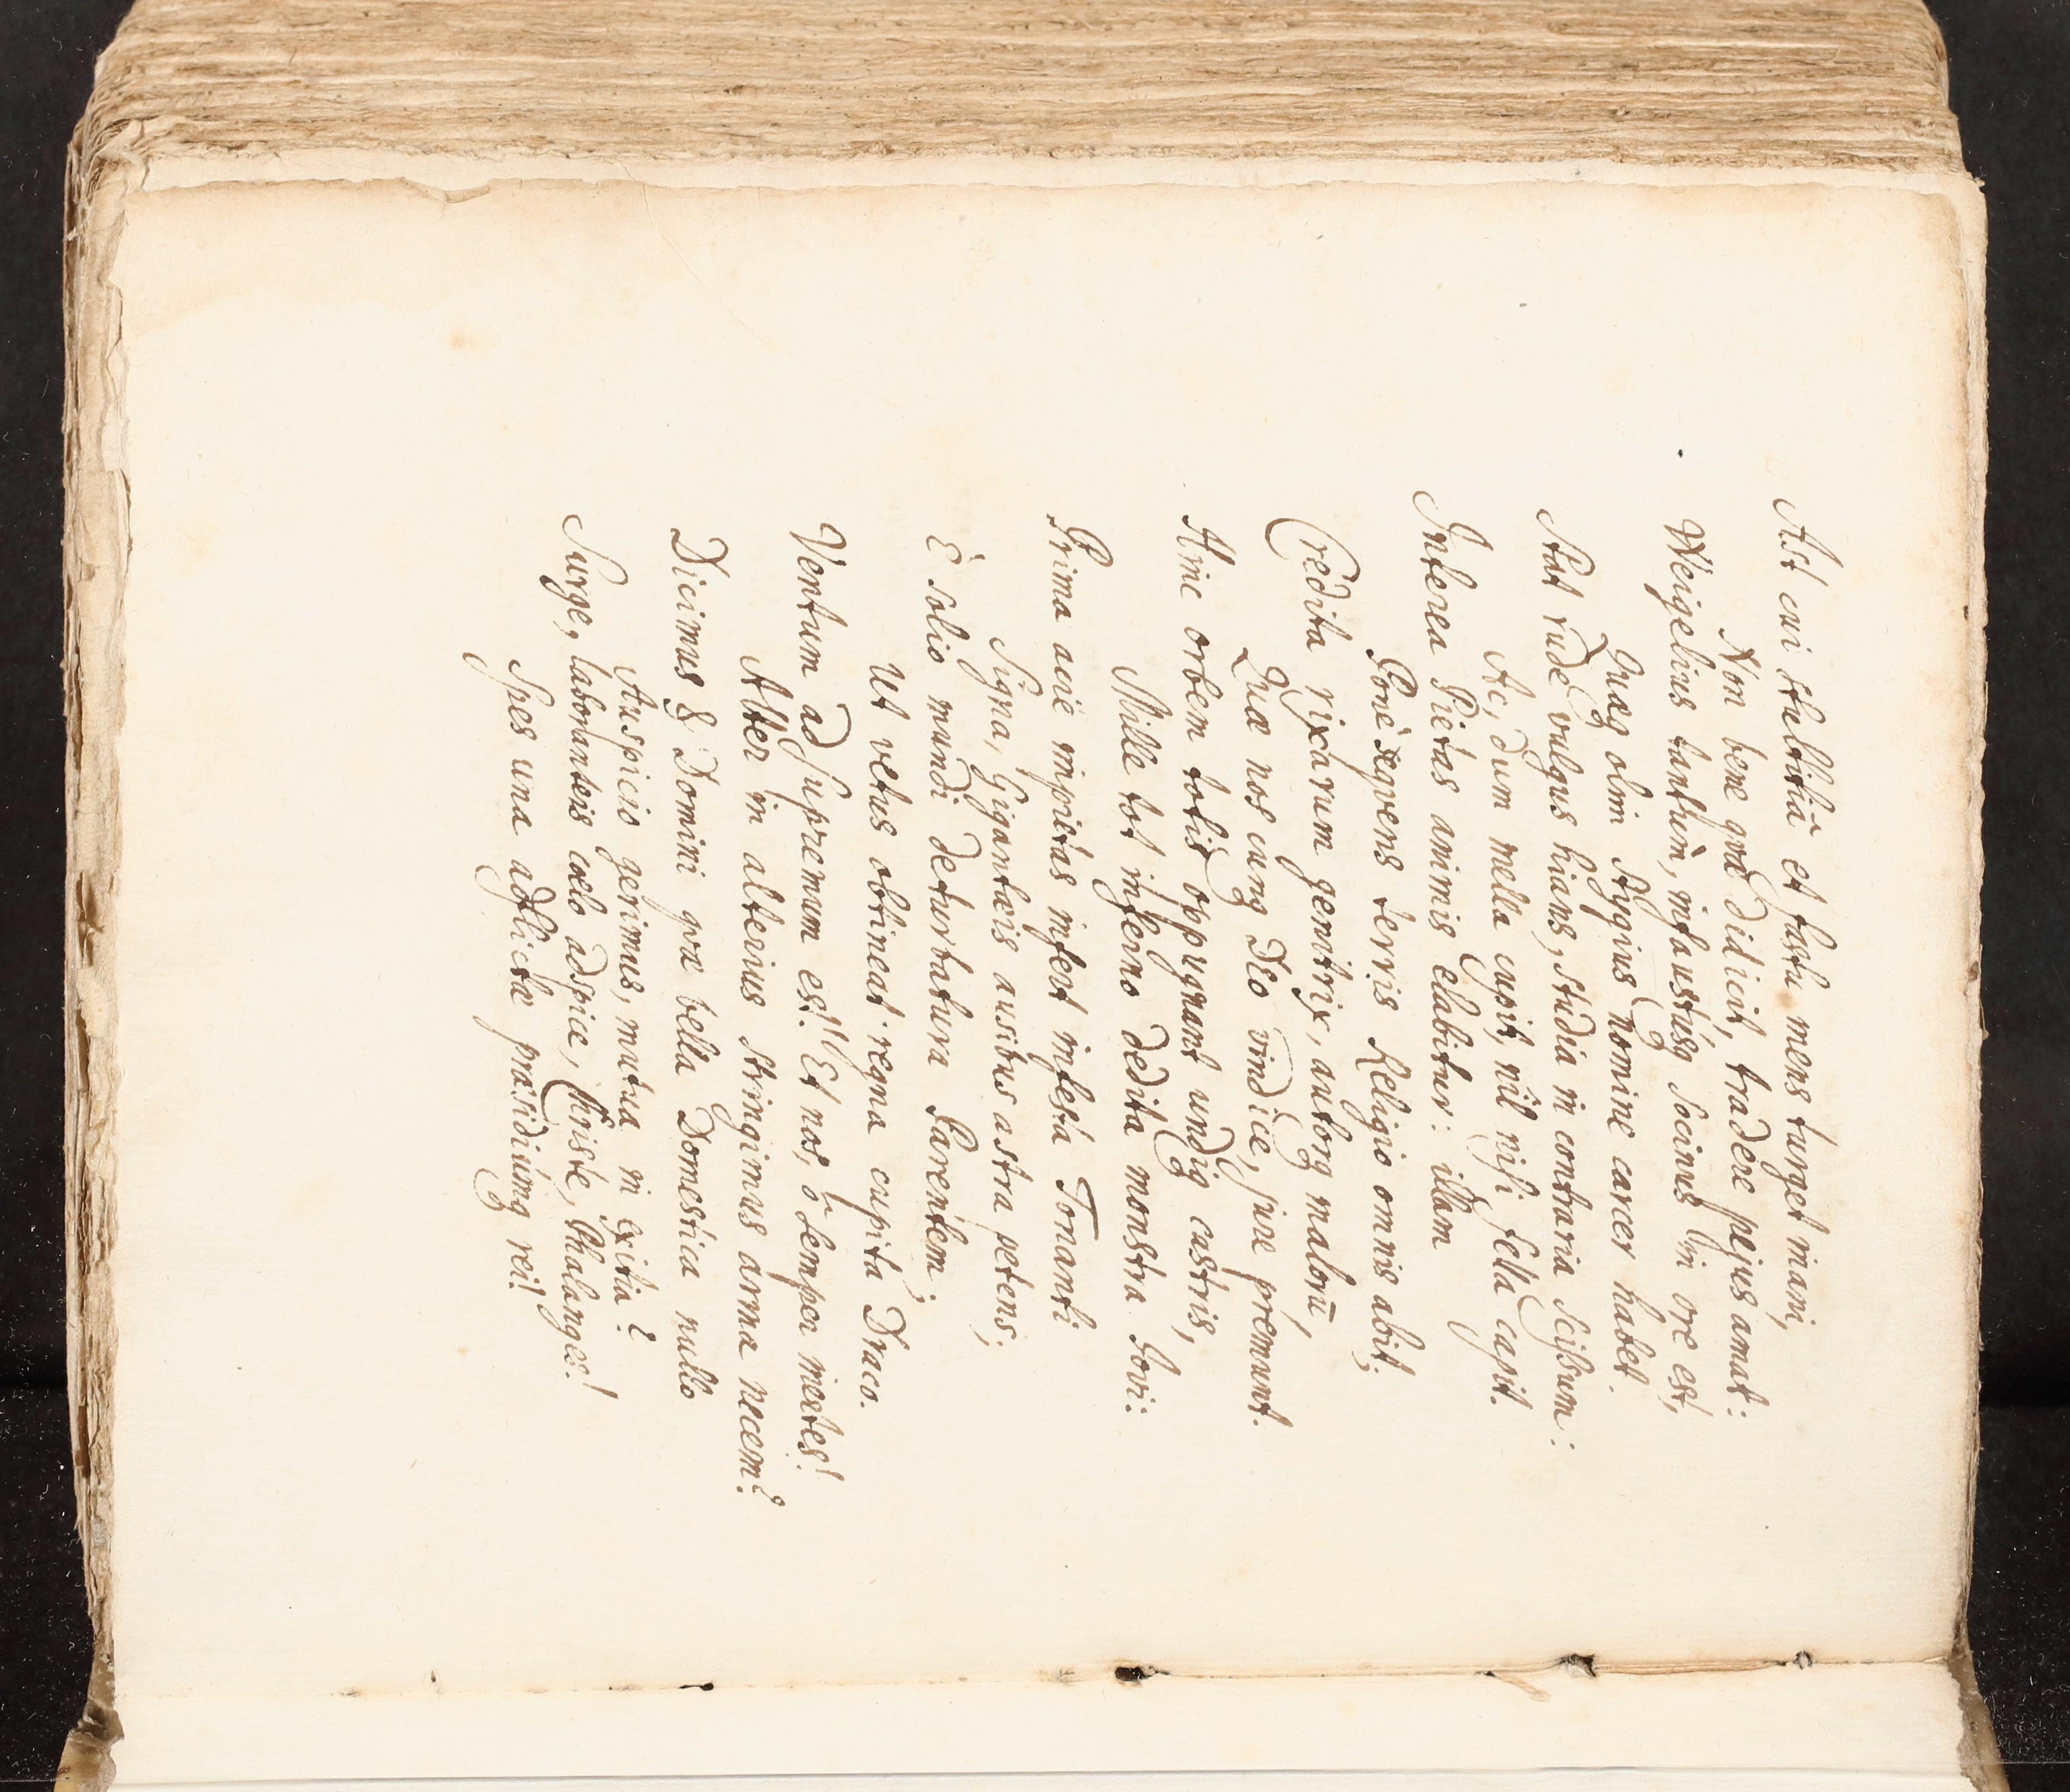 Ast cui stultitiâ et fastu mens turget inani,
Non bene quæ didicit, tradere pejus amat:
Weigelius tantùm, infaustúsq Socinus in ore est,
Quasq olim Stygius nomine carcer habet.
Stat rude vulgus hians, studia in contraria scissum:
Ac, dum mella cupit, nil nisi fella capit.
Interea Pietas animis elabitur: illam
Ponè seqvens terris Religio omnis abit;
Credita rixarum genitrix, autorq malorū,
Quæ nos cunq Deo vindice, jure premunt.
Hinc orbem totis oppugnant undiq castris,
Mille tot inferno dedita monstra Jovi:
Prima acie impietas infert infesta Tonanti
Signa, Gigantæis ausibus astra petens;
È solio mundi deturbatura Parentem;
Ut vetus obtineat regna cupita Draco.
Ventum ad supremum est! Et nos, ô semper inertes!
Alter in alterius stringimus arma necem?
Dicimus & Domini qvæ bella Domestica nullo
Auspicio gerimus, mutua in exitia?
Surge, laboranteis cœlo adspice, Christe, Phalanges!
Spes una adflictæ præsidiúmq rei!